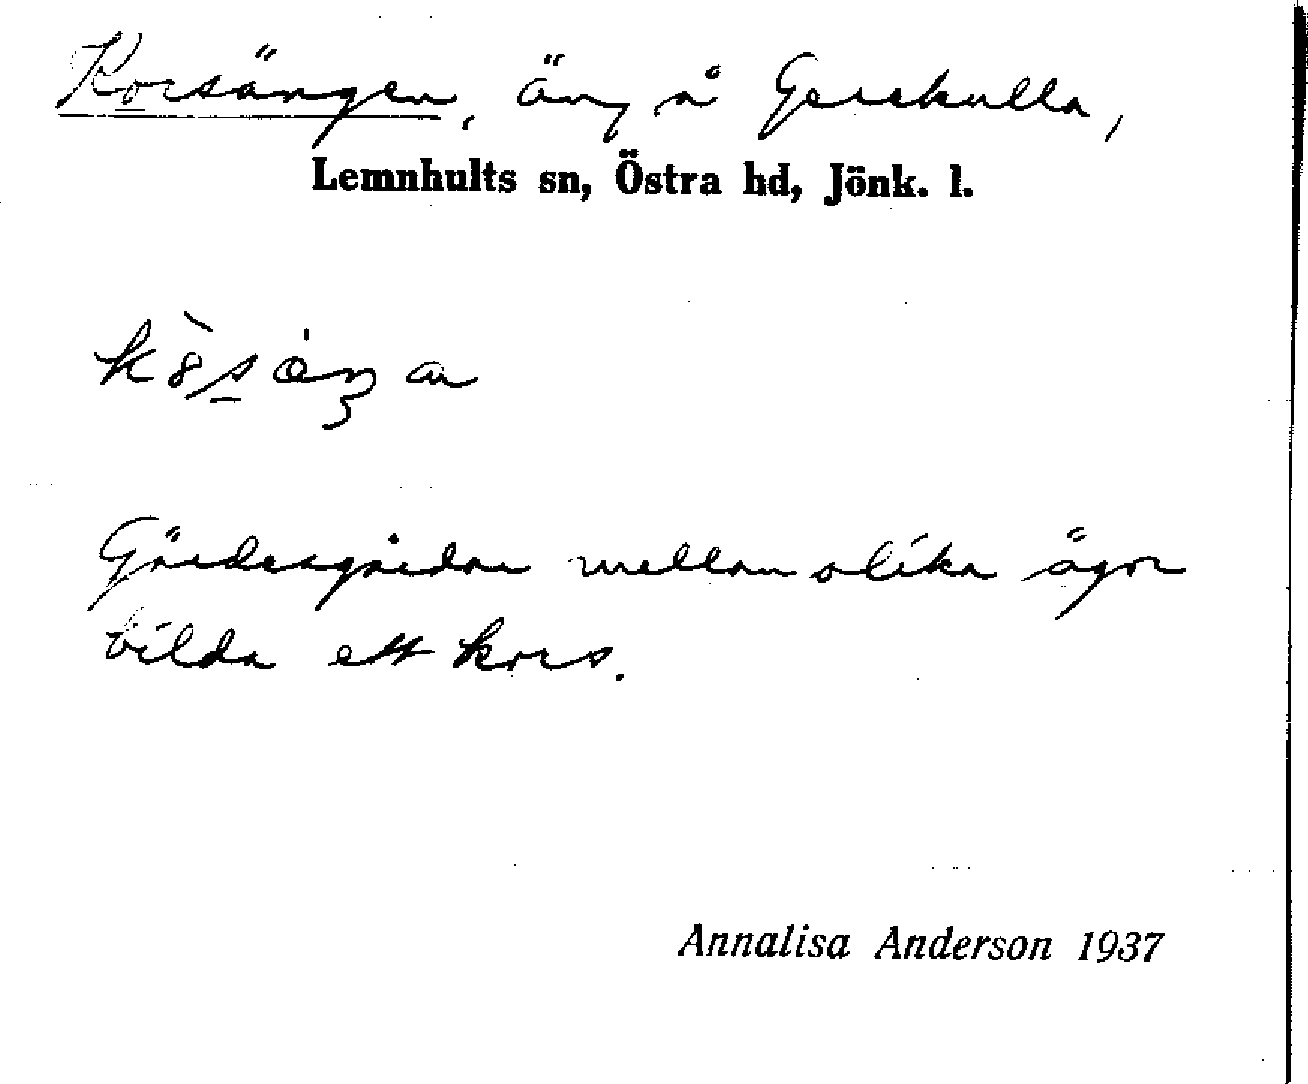 Korsängen, äng å Gerekulla,
Lemnhults sn, Östra hd, Jönk. l.
Gärdesgårdar mellan olika ägor
bilda ett kors.
Annalisa Anderson 1937